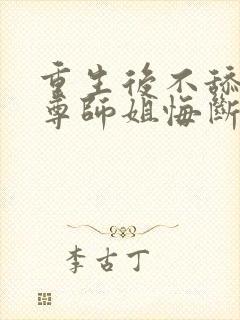 重生後不舔
尊師姐悔斷
李古丁